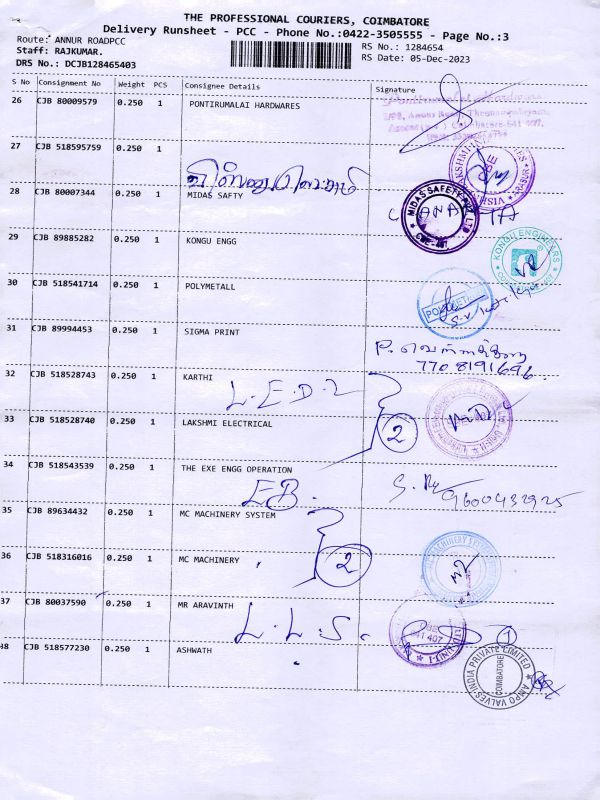 THE PROFESSIONAL COURIERS, COIMBATORE
Delivery Runsheet - PCC - Phone No.:0422-3505555 - Page No.:3
Route: ANNUR ROADPCC
Staff: RAJKUMAR.
DRS No.: DCJB128465403
RS No.: 1284654
RS Date: 05-Dec-2023
S No Consignment No Weight PCS Consignee Details Signature
26 CJB 80009579 0.250 1 PONTIRUMALAI HARDWARES
27 CJB 518595759 0.250 1
28 CJB 80007344 0.250 1 MIDAS SAFTY
29 CJB 89885282 0.250 1 KONGU ENGG
KONGU ENGINEERS
30 CJB 518541714 0.250 1 POLYMETALL
31 CJB 89994453 0.250 1 SIGMA PRINT
770 8191696
32 CJB 518528743 0.250 1 KARTHI
L.E.D-2
33 CJB 518528740 0.250 1 LAKSHMI ELECTRICAL
2
34 CJB 518543539 0.250 1 THE EXE ENGG OPERATION
EB.
9600432925
35 CJB 89634432 0.250 1 MC MACHINERY SYSTEM
36 CJB 518316016 0.250 1 MC MACHINERY
2
37 CJB 80037590 0.250 1 MR ARAVINTH
L.L.S.
1
38 CJB 518577230 0.250 1 ASHWATH
ANPO VALVES INDIA PRIVATE LIMITED
COIMBATORE